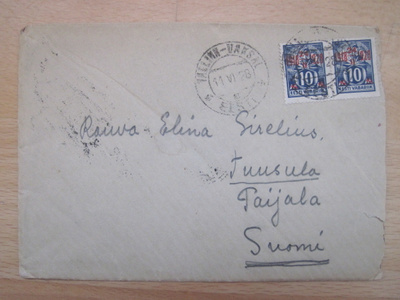 TALLINN-VAKSAL
11 VI 26
EESTI
10
10
EESTI VABARIIK
EESTI VABARIIK
Raiwa-Elina Sirelius,
Tuusula
Paijala
Suomi